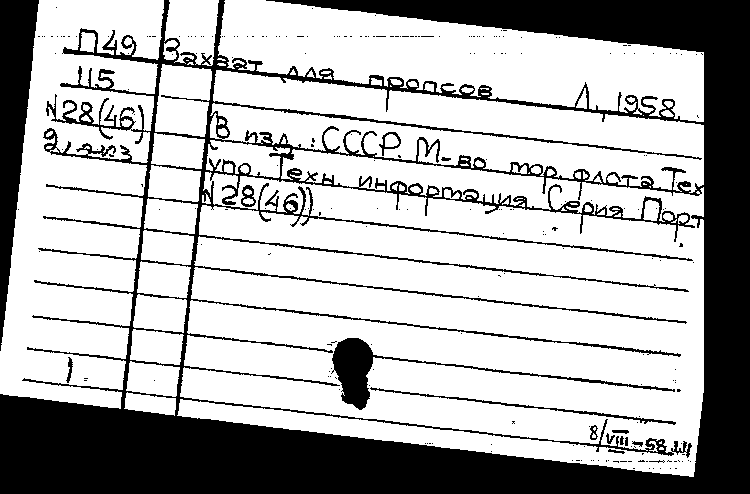 П49 Захват для пропсов. Л., 1958.
115
N28(46) (В изд.: СССР. М-во мор. флота. Тех
2, экз упр. Техн. информация. Серия Порт
N28(46)).
1.
8/VIII-58.